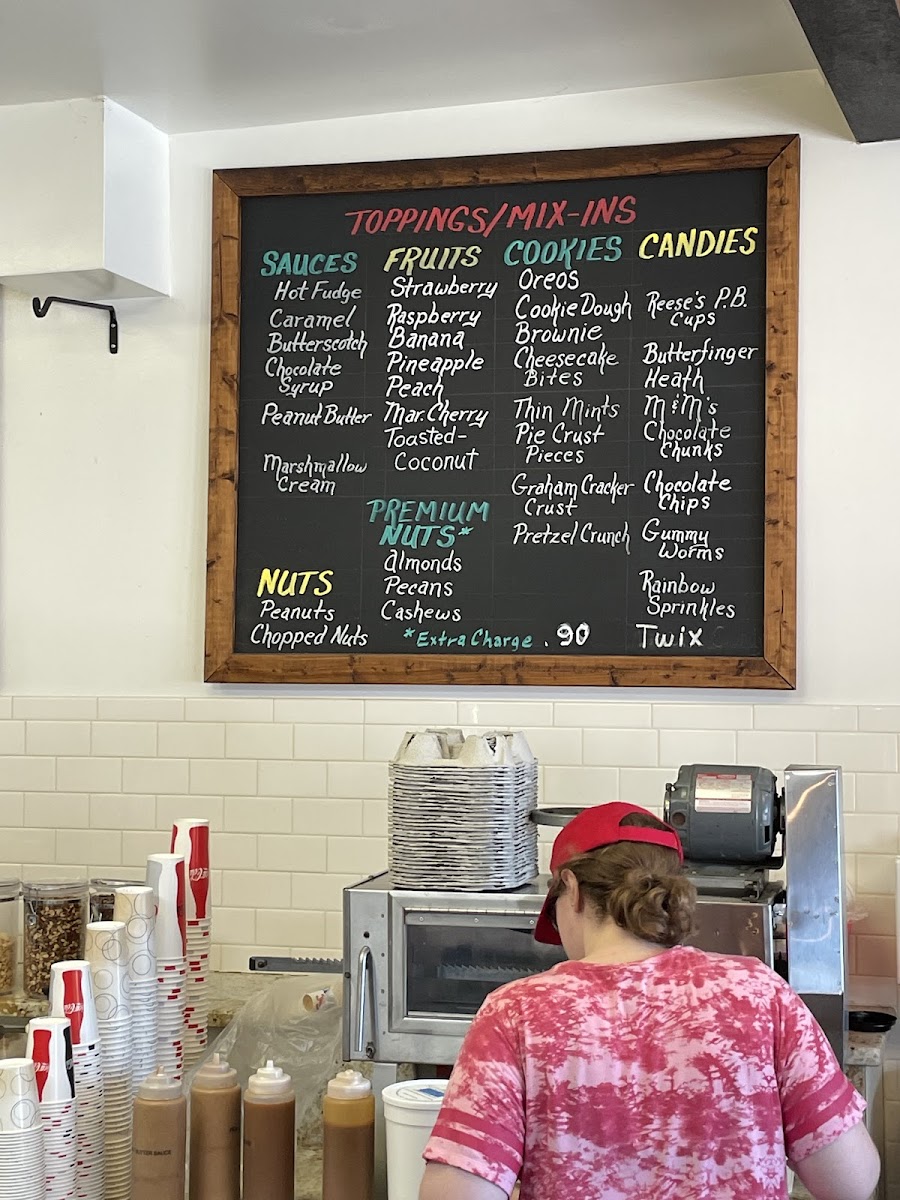 TOPPINGS/MIX-INS
SAUCES
Hot Fudge
Caramel
Butterscotch
Chocolate
Syrup
Peanut Butter
Marshmallow
Cream
NUTS
Peanuts
Chopped Nuts
FRUITS
Strawberry
Raspberry
Banana
Pineapple
Peach
Mar. Cherry
Toasted-
Coconut
PREMIUM
NUTS*
Almonds
Pecans
Cashews
*Extra Charge .90
COOKIES
Oreos
Cookie Dough
Brownie
Cheesecake
Bites
Thin Mints
Pie Crust
Pieces
Graham Cracker
Crust
Pretzel Crunch
CANDIES
Reese's P.B.
Cups
Butterfinger
Heath
M&M's
Chocolate
Chunks
Chocolate
Chips
Gummy
Worms
Rainbow
Sprinkles
Twix